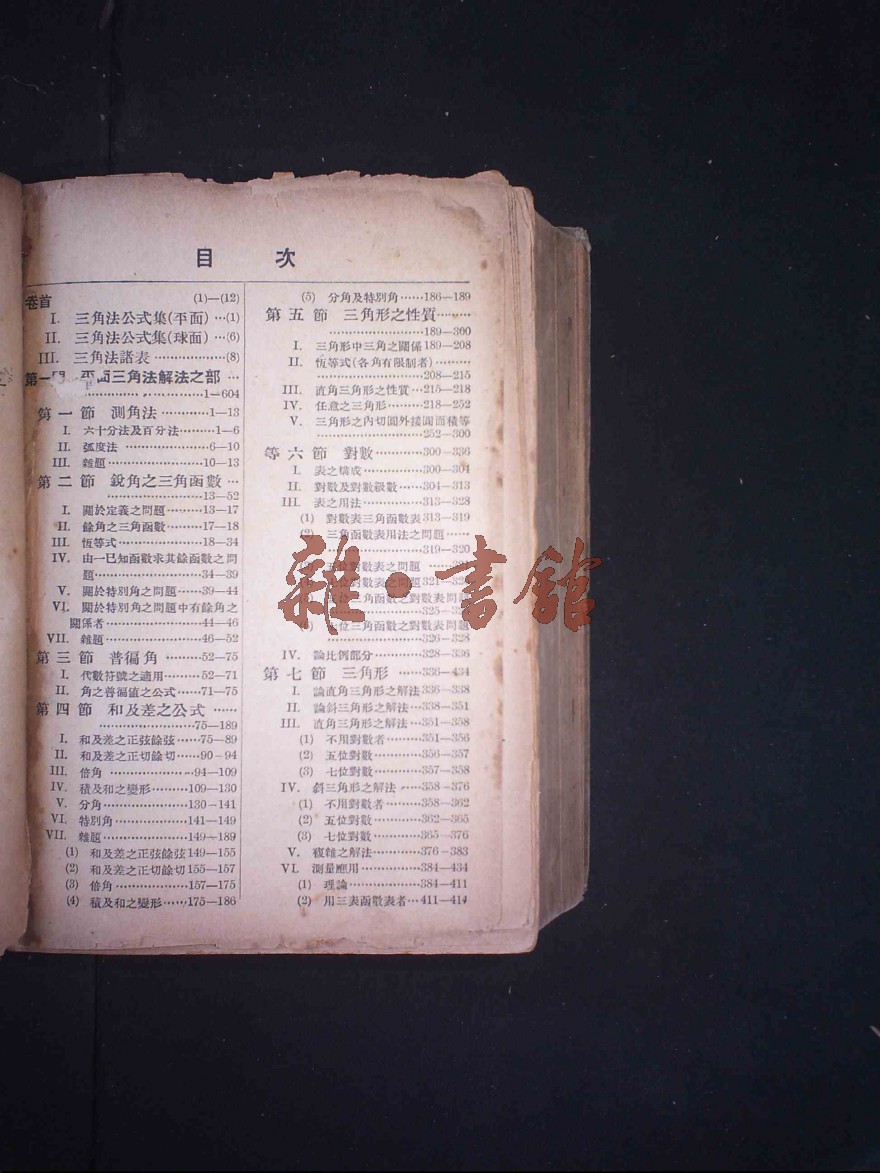 目 次
卷首 (1)—(12)
I. 三角法公式集(平面) …(1)
II. 三角法公式集(球面) …(6)
III. 三角法諸表 ………………(8)
第一 平面三角法解法之部 …
……………………1—604
第一節 測角法 …………1—13
I. 六十分法及百分法………1—6
II. 弧度法 ………………6—10
III. 雜題 …………………10—13
第二節 銳角之三角函數 …
……………………13—52
I. 關於定義之問題………13—17
II. 餘角之三角函數………17—18
III. 恆等式…………………18—34
IV. 由一已知函數求其餘函數之問
題…………………………34—39
V. 關於特別角之問題……39—44
VI. 關於特別角之問題中有餘角之
關係者……………………44—46
VII. 雜題……………………46—52
第三節 普徧角 ………52—75
I. 代數符號之適用………52—71
II. 角之普徧値之公式……71—75
第四節 和及差之公式 ……
……………………75—189
I. 和及差之正弦餘弦……75—89
II. 和及差之正切餘切……90-94
III. 倍角 …………………94—109
IV. 積及和之變形………109—130
V. 分角…………………130-141
VI. 特別角………………141—149
VII. 雜題…………………149—189
(1) 和及差之正弦餘弦149—155
(2) 和及差之正切餘切155—157
(3) 倍角………………157—175
(4) 積及和之變形……175—186
(5) 分角及特別角……186—189
第五節 三角形之性質………
……………………189—300
I. 三角形中三角之關係189—208
II. 恆等式(各角有限制者)………
……………………208—215
III. 直角三角形之性質…215—218
IV. 任意之三角形………218—252
V. 三角形之內切圓外接圓面積等
……………………252—300
等六節 對數…………300—336
I. 表之構成……………300—304
II. 對數及對數級數……304—313
III. 表之用法……………313—328
(1) 對數表三角函數表313—319
(2) 三角函數表用法之問題……
……………………319—320
五位對數表之問題
位對數表之問題321—32
位三角函數之對數表問題
325—32
七位三角函數之對數表問題
……………………326—328
IV. 論比例部分…………328—336
第七節 三角形 ……336—434
I. 論直角三角形之解法336—338
II. 論斜三角形之解法…338—351
III. 直角三角形之解法…351—358
(1) 不用對數者………351—356
(2) 五位對數…………356—357
(3) 七位對數…………357—358
IV. 斜三角形之解法 ……358-376
(1) 不用對數者………358—362
(2) 五位對數…………362—365
(3) 七位對數…………365—376
V. 複雜之解法…………376—383
VI. 測量應用……………384—434
(1) 理論………………384—411
(2) 用三表函數表者…411—414
雜·書館